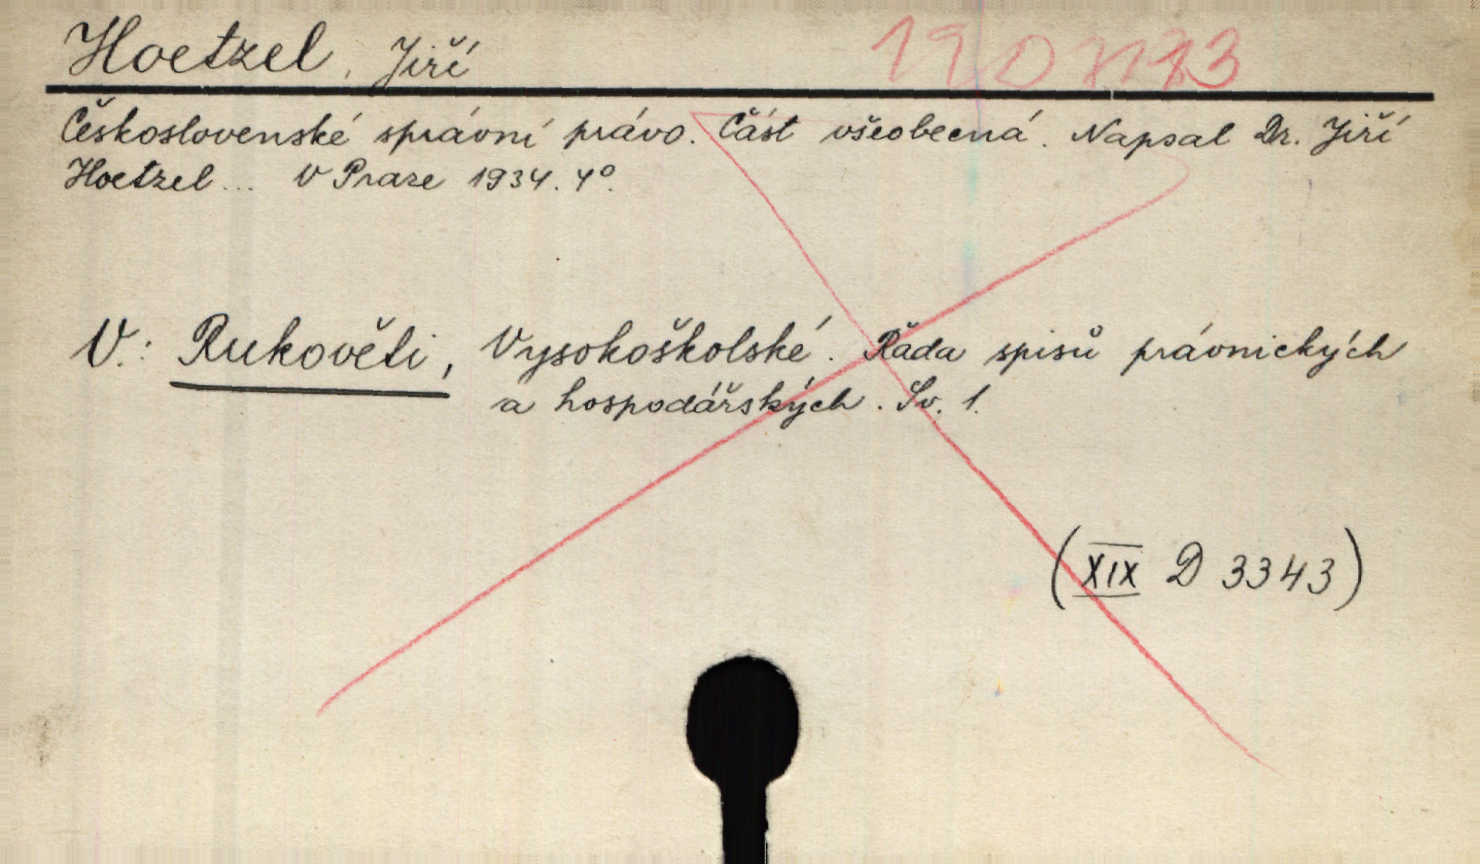 Hoetzel, Jiří
Československé správní právo. Část všeobecná. Napsal Dr. Jiří
Hoetzel... V Praze 1934. 4°.
V.: Rukověti, Vysokoškolské. Řada spisů právnických
a hospodářských. Sv. 1.
(XIX D 3343)